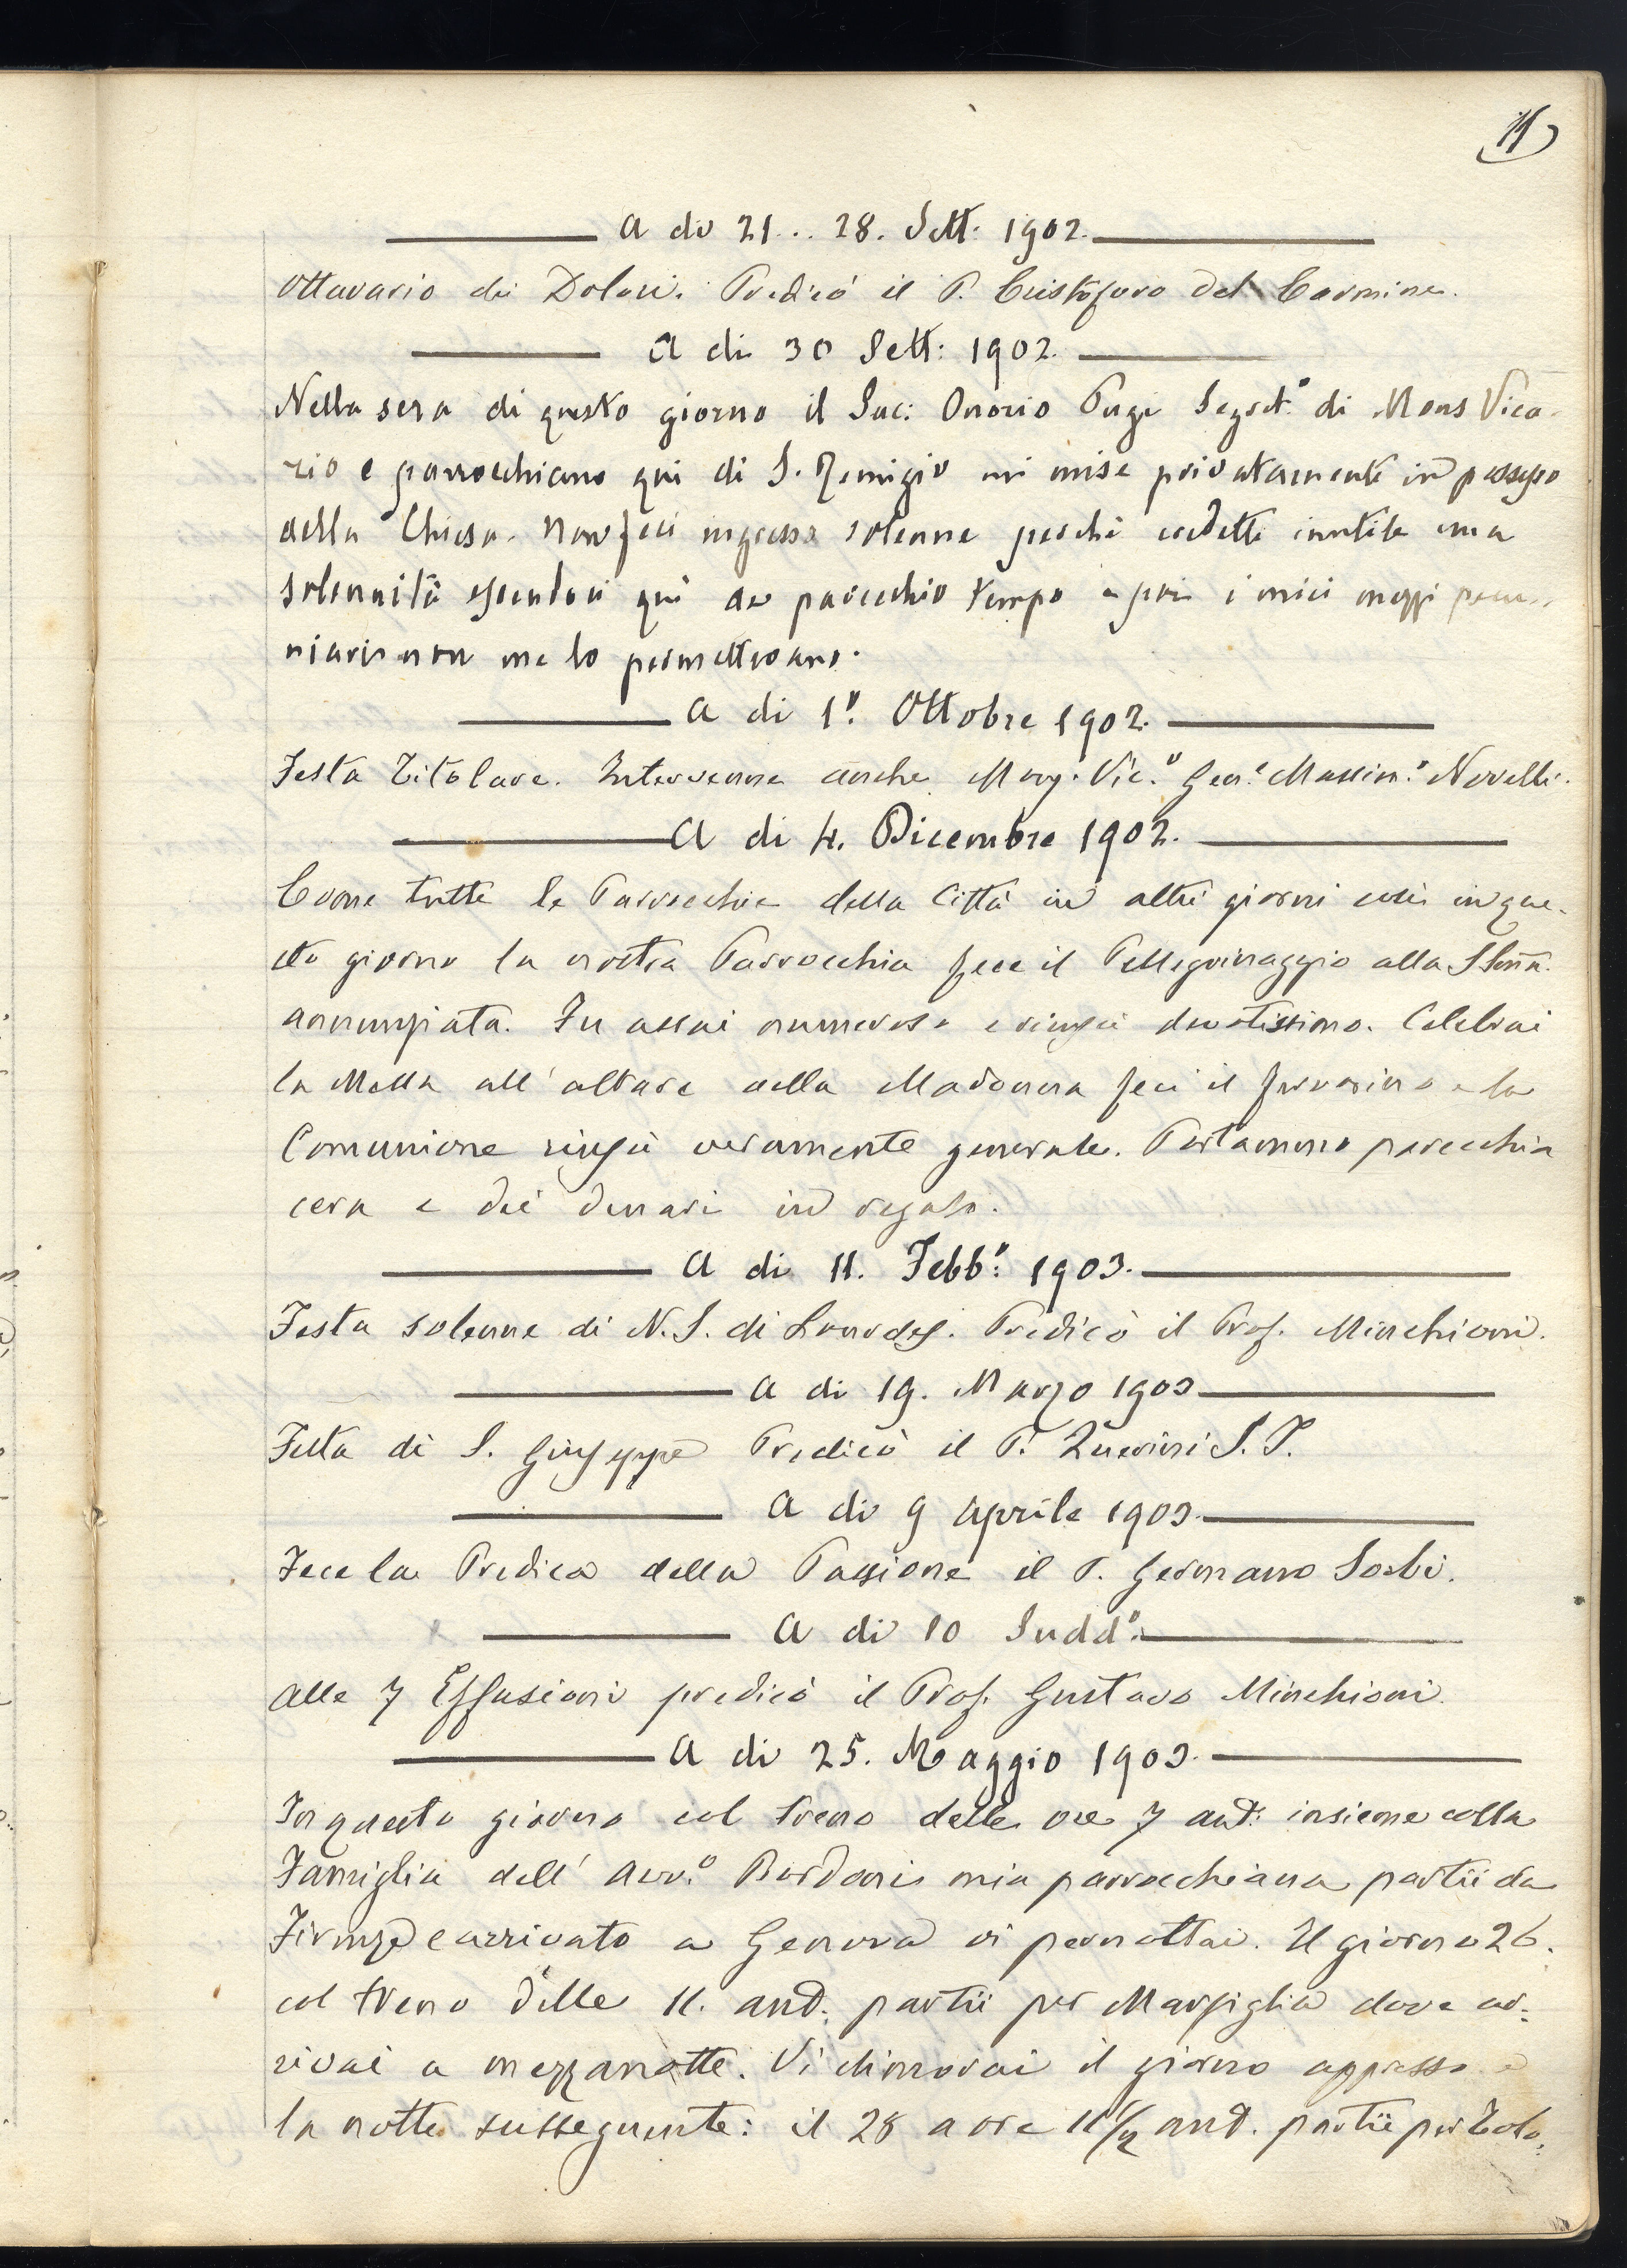 11
A di 21 .. 28. Sett: 1902.
Ottavario dei Dolori. Predicò il P. Cristoforo del Carmine.
A di 30 Sett: 1902.
Nella sera di questo giorno il Sac: Onorio Pugi Segret.º di Mons Vica-
rio e parrochiano qui di S. Remigio mi mise privatamente in possesso
della Chiesa. Non feci ingresso solenne perchè credetti inutile una
solennità essendoci qui da parecchio tempo e poi i miei mezzi pecu-
niari non me lo permettevano.
A di 1º. Ottobre 1902.
Festa Titolare. Intervenne anche Mong. Vic.º Gen.e Massim.º Novelli.
A di 4. Dicembre 1902.
Come tutte le Parrocchie della Città in altri giorni così in que-
sto giorno la nostra Parrocchia fece il Pellegrinaggio alla SSma
Annunziata. Fu assai numeroso e riuscì devotissimo. Celebrai
la Messa all'altare della Madonna feci il fervorino e la
Comunione riuscì veramente generale. Portammo parecchia
cera e dei denari in regalo.
A di 11. Febb.º: 1903.
Festa solenne di N. S. di Lourdes. Predicò il Prof. Minchioni.
A di 19. Marzo 1903
Festa di S. Giuseppe Predicò il P. S. P.
A di 9 Aprile 1903.
Fece la Predica della Passione il P. Germano Sorbi.
A di 10 Sudd.º:
Alle 7 Effusioni predicò il Prof. Gustavo Minchioni.
A di 25. Maggio 1903.
In questo giorno col treno delle ore 7 ant: insieme colla
Famiglia dell' Avv.º Bordoni mia parrocchiana partii da
Firenze e arrivato a Genova vi pernottai. Il giorno 26.
col treno delle 11. ant: partii per Marsiglia dove ar-
rivai a mezzanotte. Vi dimorai il giorno appresso e
la notte susseguente: il 28 a ore 11 1/2 ant. partii per Tolo-